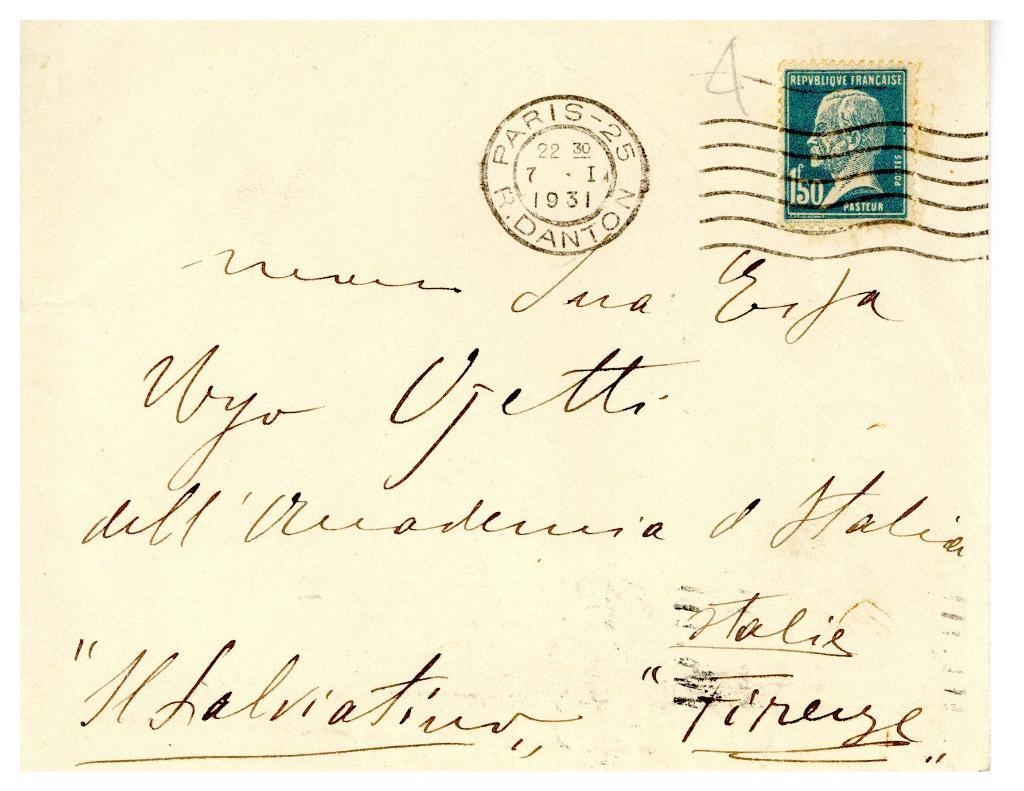 4
REPVBLIQVE FRANÇAISE
1f50
POSTES
PASTEUR
PARIS-25
22 30
7 . I
1931
R. DANTON
Sua Ecza
Ugo Ojetti
dell'Accademia d Italia
Italie
"Il Salviatino" "Firenze"